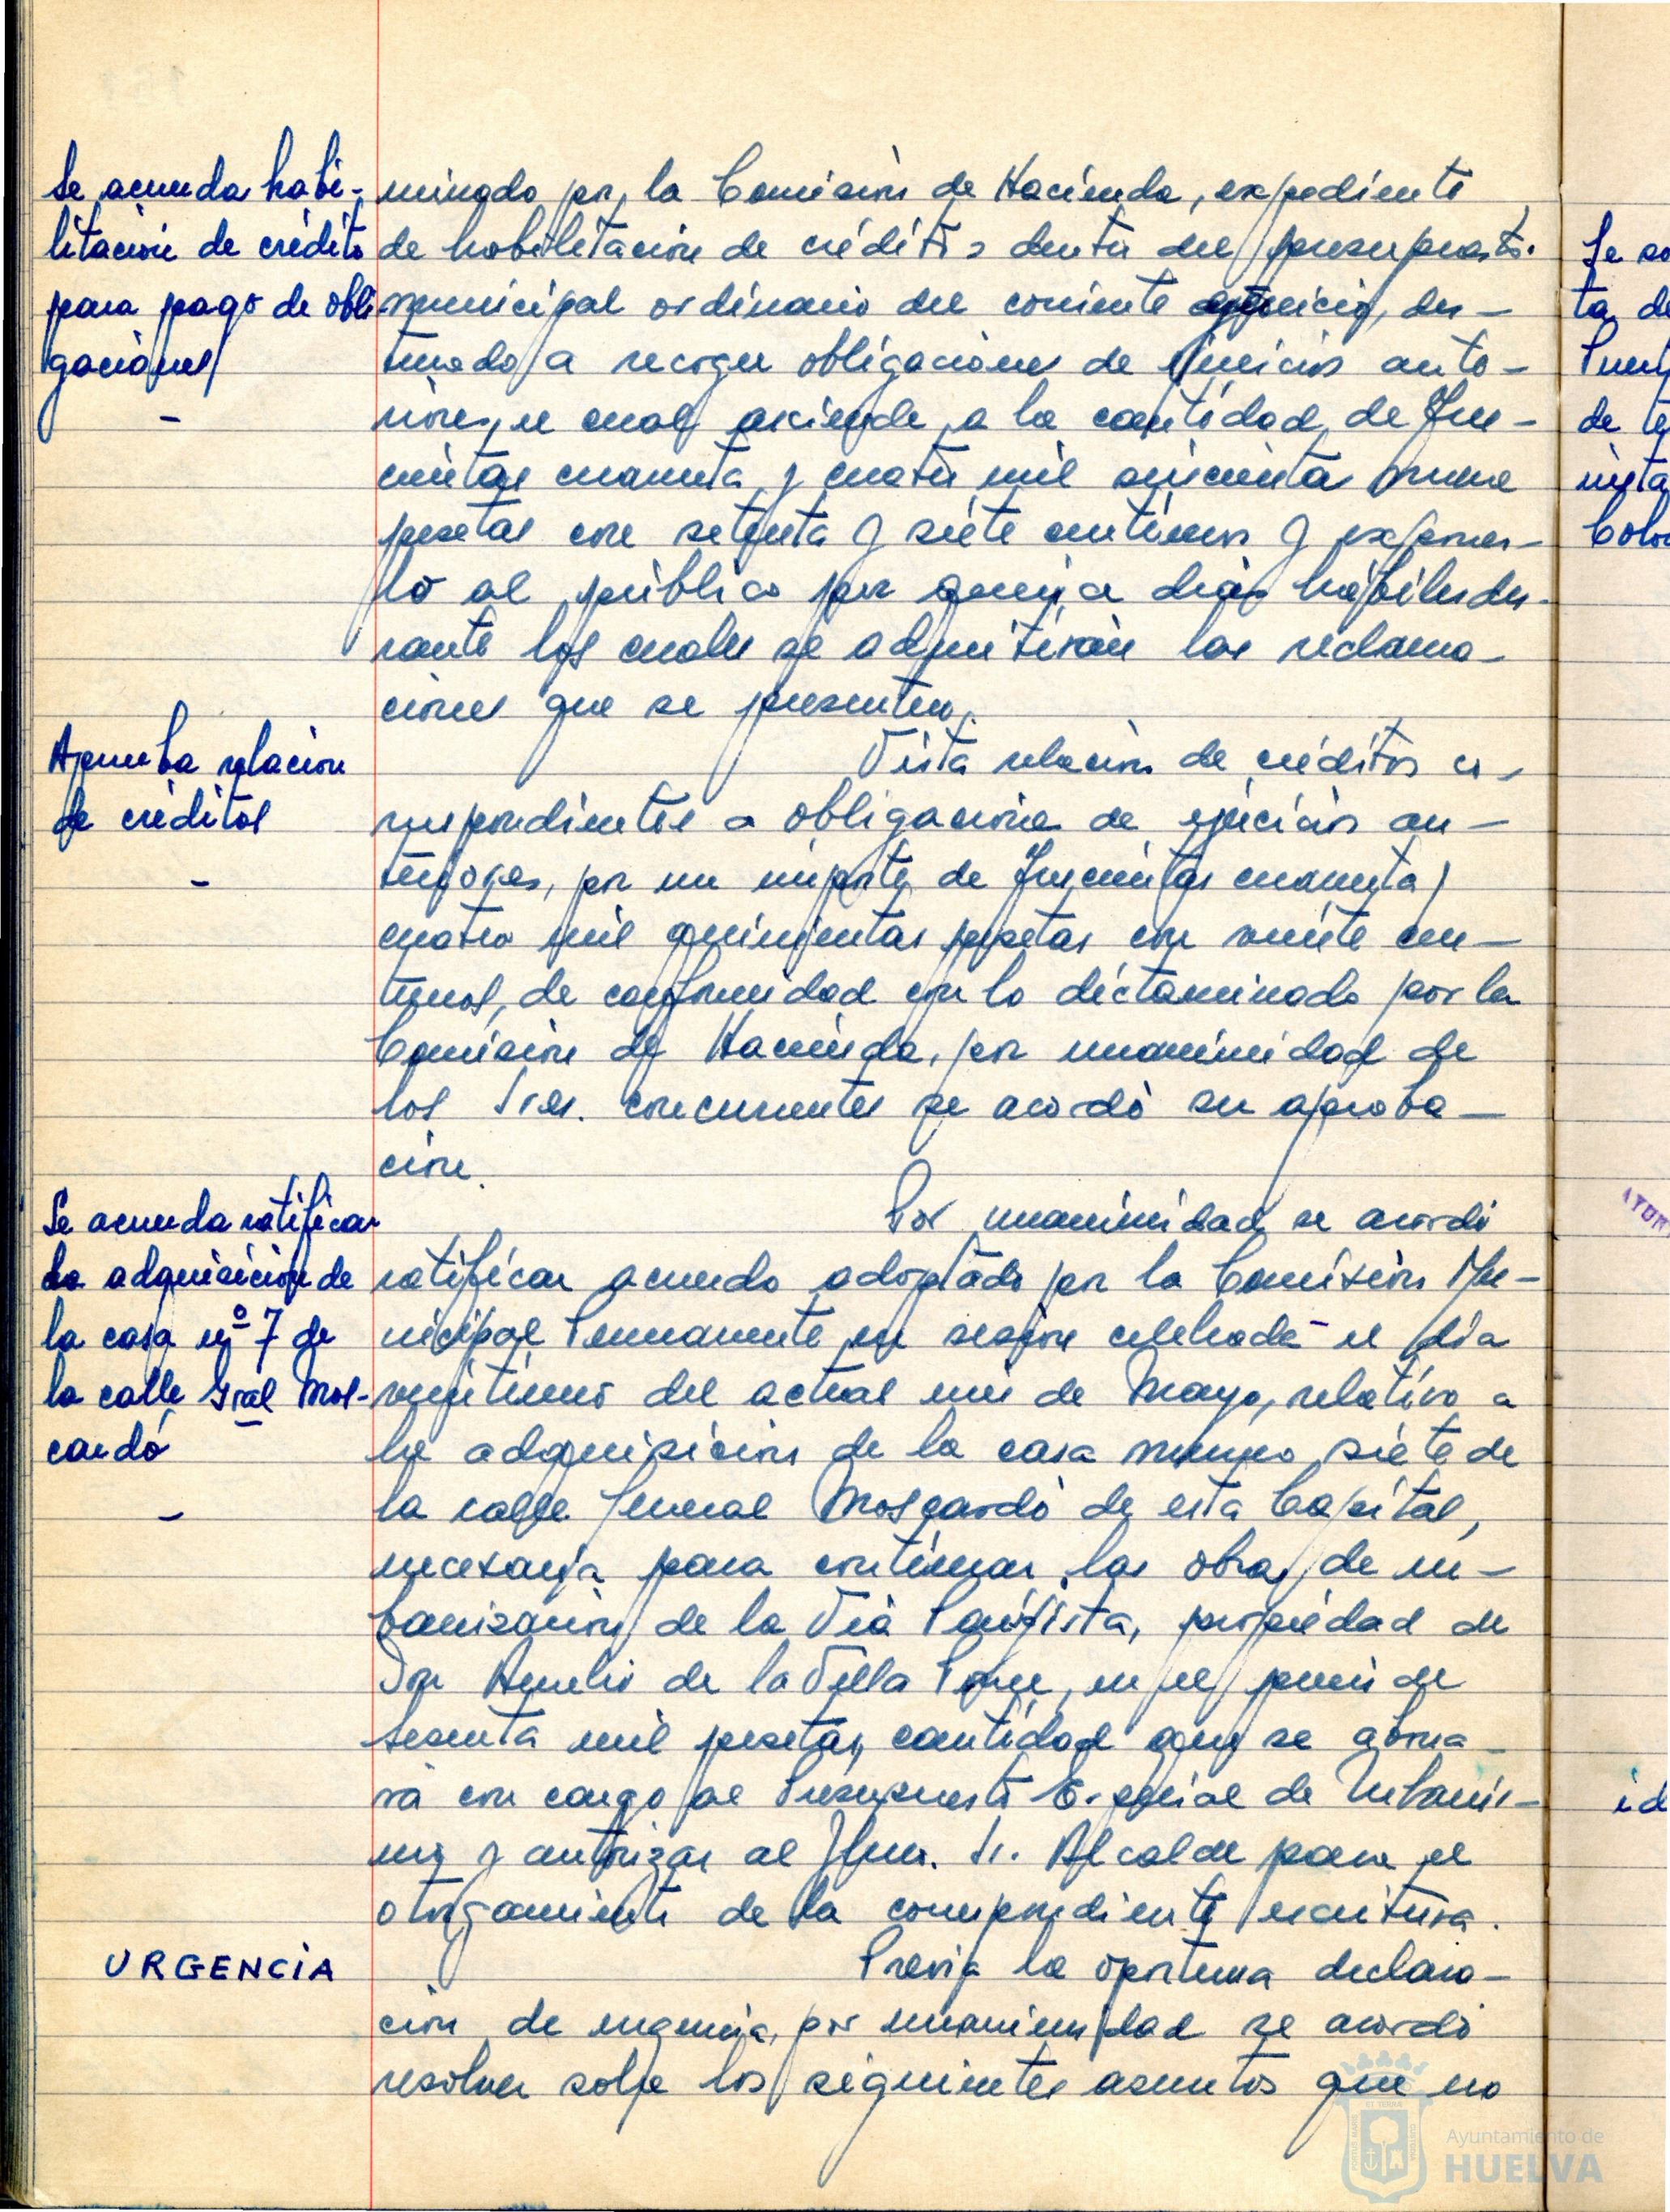 Se acuerda habi-
litación de crédito
para pago de obli-
gaciones
minado por la Comisión de Hacienda, expediente
de habilitación de créditos dentro del presupuesto
municipal ordinario del corriente ejercicio, des-
tinado a recoger obligaciones de ejercicios ante-
riores, el cual asciende a la cantidad de Tres-
cientas cuarenta y cuatro mil quinientas nueve
pesetas con setenta y siete céntimos y exponer-
lo al público por quince días hábiles du-
rante los cuales se admitirán las reclama-
ciones que se presenten.
Aprueba relación
de créditos
Vista relación de créditos co-
rrespondientes a obligaciones de ejercicios an-
teriores, por un importe de Trescientas cuarenta y
cuatro mil quinientas pesetas con veinte cén-
timos, de conformidad con lo dictaminado por la
Comisión de Hacienda, por unanimidad de
los Sres. concurrentes se acordó su aproba-
ción.
Se acuerda ratificar
la adquisición de
la casa nº 7 de
la calle Gral Mos-
cardó
Por unanimidad se acordó
ratificar acuerdo adoptado por la Comisión Mu-
nicipal Permanente en sesión celebrada el día
del actual mes de Mayo, relativo a
la adquisición de la casa número siete de
la calle General Moscardó de esta Capital,
necesaria para continuar las obras de ur-
banización de la Vía Paisajista, propiedad de
Don Aurelio de la Villa, en el precio de
sesenta mil pesetas, cantidad que se abona-
rá con cargo al Presupuesto Especial de Urbanis-
mo y autorizar al Iltmo. Sr. Alcalde para el
otorgamiento de la correspondiente escritura.
URGENCIA
Previa la oportuna declara-
ción de urgencia, por unanimidad se acordó
resolver sobre los siguientes asuntos que no
Ayuntamiento de
HUELVA